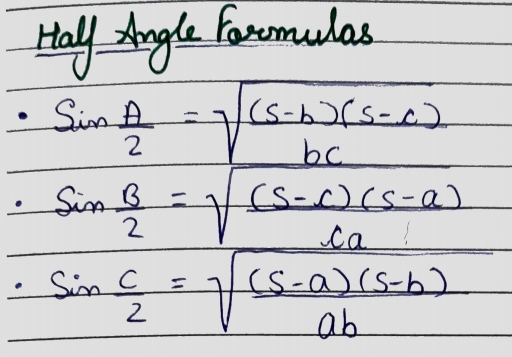 Half Angle Formulas
• Sin A/2 = √((S-b)(S-c)/bc)
• Sin B/2 = √((S-c)(S-a)/ca)
• Sin C/2 = √((S-a)(S-b)/ab)